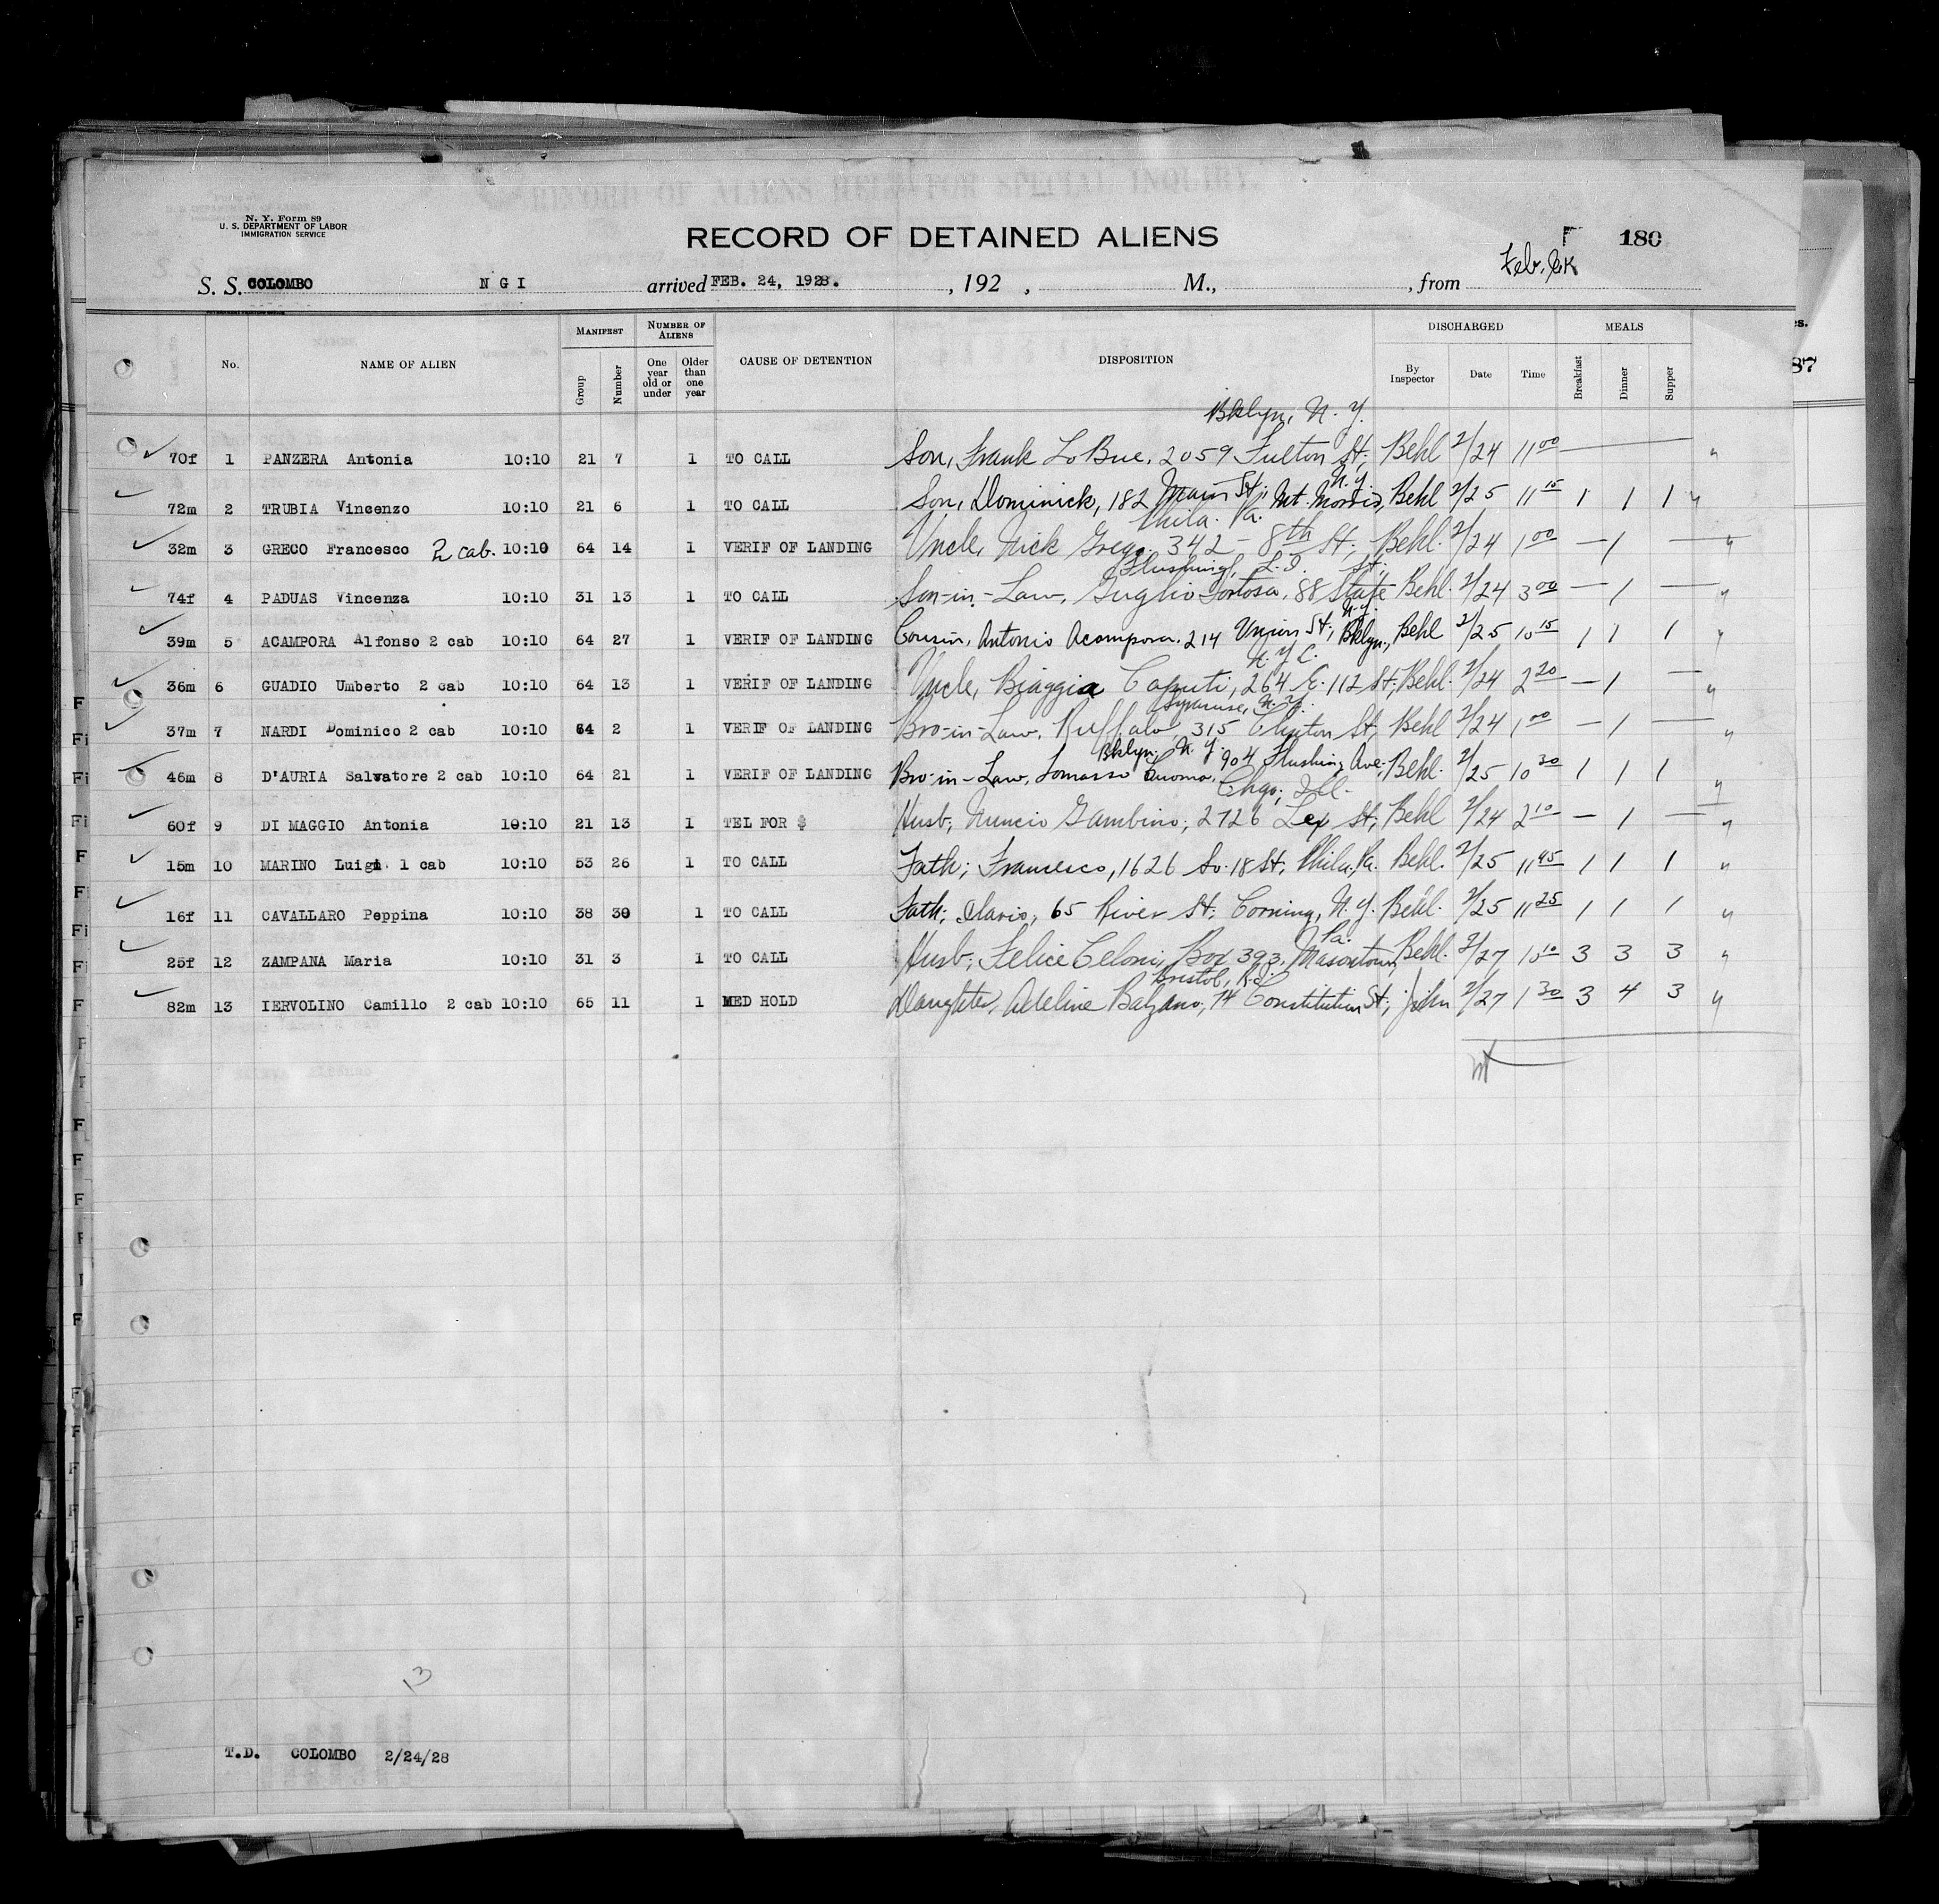 RECORD OF ALIENS HELD FOR SPECIAL INQUIRY.
N. Y. Form 89
U. S. DEPARTMENT OF LABOR
IMMIGRATION SERVICE
RECORD OF DETAINED ALIENS
F 180
S. S. COLOMBO N G I arrived FEB. 24, 1928. , 192 , M., , from
No. NAME OF ALIEN MANIFEST Group Number NUMBER OF ALIENS One year old or under Older than one year CAUSE OF DETENTION DISPOSITION DISCHARGED By Inspector Date Time MEALS Breakfast Dinner Supper
87
Bklyn, N. Y.
70f 1 PANZERA Antonia 10:10 21 7 1 TO CALL Son, Frank LoBue, 2059 Fulton St; Behl 2/24 11 00 —
N.Y.
72m 2 TRUBIA Vincenzo 10:10 21 6 1 TO CALL Son, Dominick, 182 Main St; Mt. Morris, Behl 2/25 11 15 1 1 1 "
Phila. Pa.
32m 3 GRECO Francesco 2 cab. 10:10 64 14 1 VERIF OF LANDING Uncle, Nick Grego. 342 - 8th St; Behl. 2/24 1 00 — 1 — "
Flushing, L.I. St;
74f 4 PADUAS Vincenza 10:10 31 13 1 TO CALL Son-in-Law, Guglio Tortosa, 88 State Behl. 2/24 3 00 — 1 — "
N.Y.
39m 5 ACAMPORA Alfonso 2 cab 10:10 64 27 1 VERIF OF LANDING Cousin, Antonio Acampora. 214 Union St; Bklyn., Behl 2/25 10 15 1 1 1 "
N.Y.C.
36m 6 GUADIO Umberto 2 cab 10:10 64 13 1 VERIF OF LANDING Uncle, Biaggia Caputi, 264 E. 112 St; Behl. 2/24 2 20 — 1 — "
Syracuse, N.Y.
37m 7 NARDI Dominico 2 cab 10:10 64 2 1 VERIF OF LANDING Bro-in-Law, Ruffalo, 315 Clinton St; Behl 2/24 1 00 — 1 — "
Bklyn, N.Y.
46m 8 D'AURIA Salvatore 2 cab 10:10 64 21 1 VERIF OF LANDING Bro-in-Law, Tomasso 904 Flushing Ave; Behl. 2/25 10 30 1 1 1 "
Chgo; Ill.
60f 9 DI MAGGIO Antonia 10:10 21 13 1 TEL FOR $ Husb; Nuncio Gambino; 2726 Lex St; Behl 2/24 2 10 — 1 — "
15m 10 MARINO Luigi 1 cab 10:10 53 26 1 TO CALL Fath; Francesco, 1626 So. 18 St; Phila. Pa. Behl. 2/25 11 45 1 1 1 "
16f 11 CAVALLARO Peppina 10:10 38 30 1 TO CALL Fath; Ilario; 65 River St; Corning, N.Y. Behl. 2/25 11 25 1 1 1 "
Pa.
25f 12 ZAMPANA Maria 10:10 31 3 1 TO CALL Husb; Felice Celoni; Box 393, Masontown, Behl. 2/27 10 10 3 3 3 "
Bristol, R.I.
82m 13 IERVOLINO Camillo 2 cab 10:10 65 11 1 MED HOLD Daughter, Adeline Balzano; 74 Constitution St; 2/27 1 30 3 4 3 "
13
T.D. COLOMBO 2/24/28